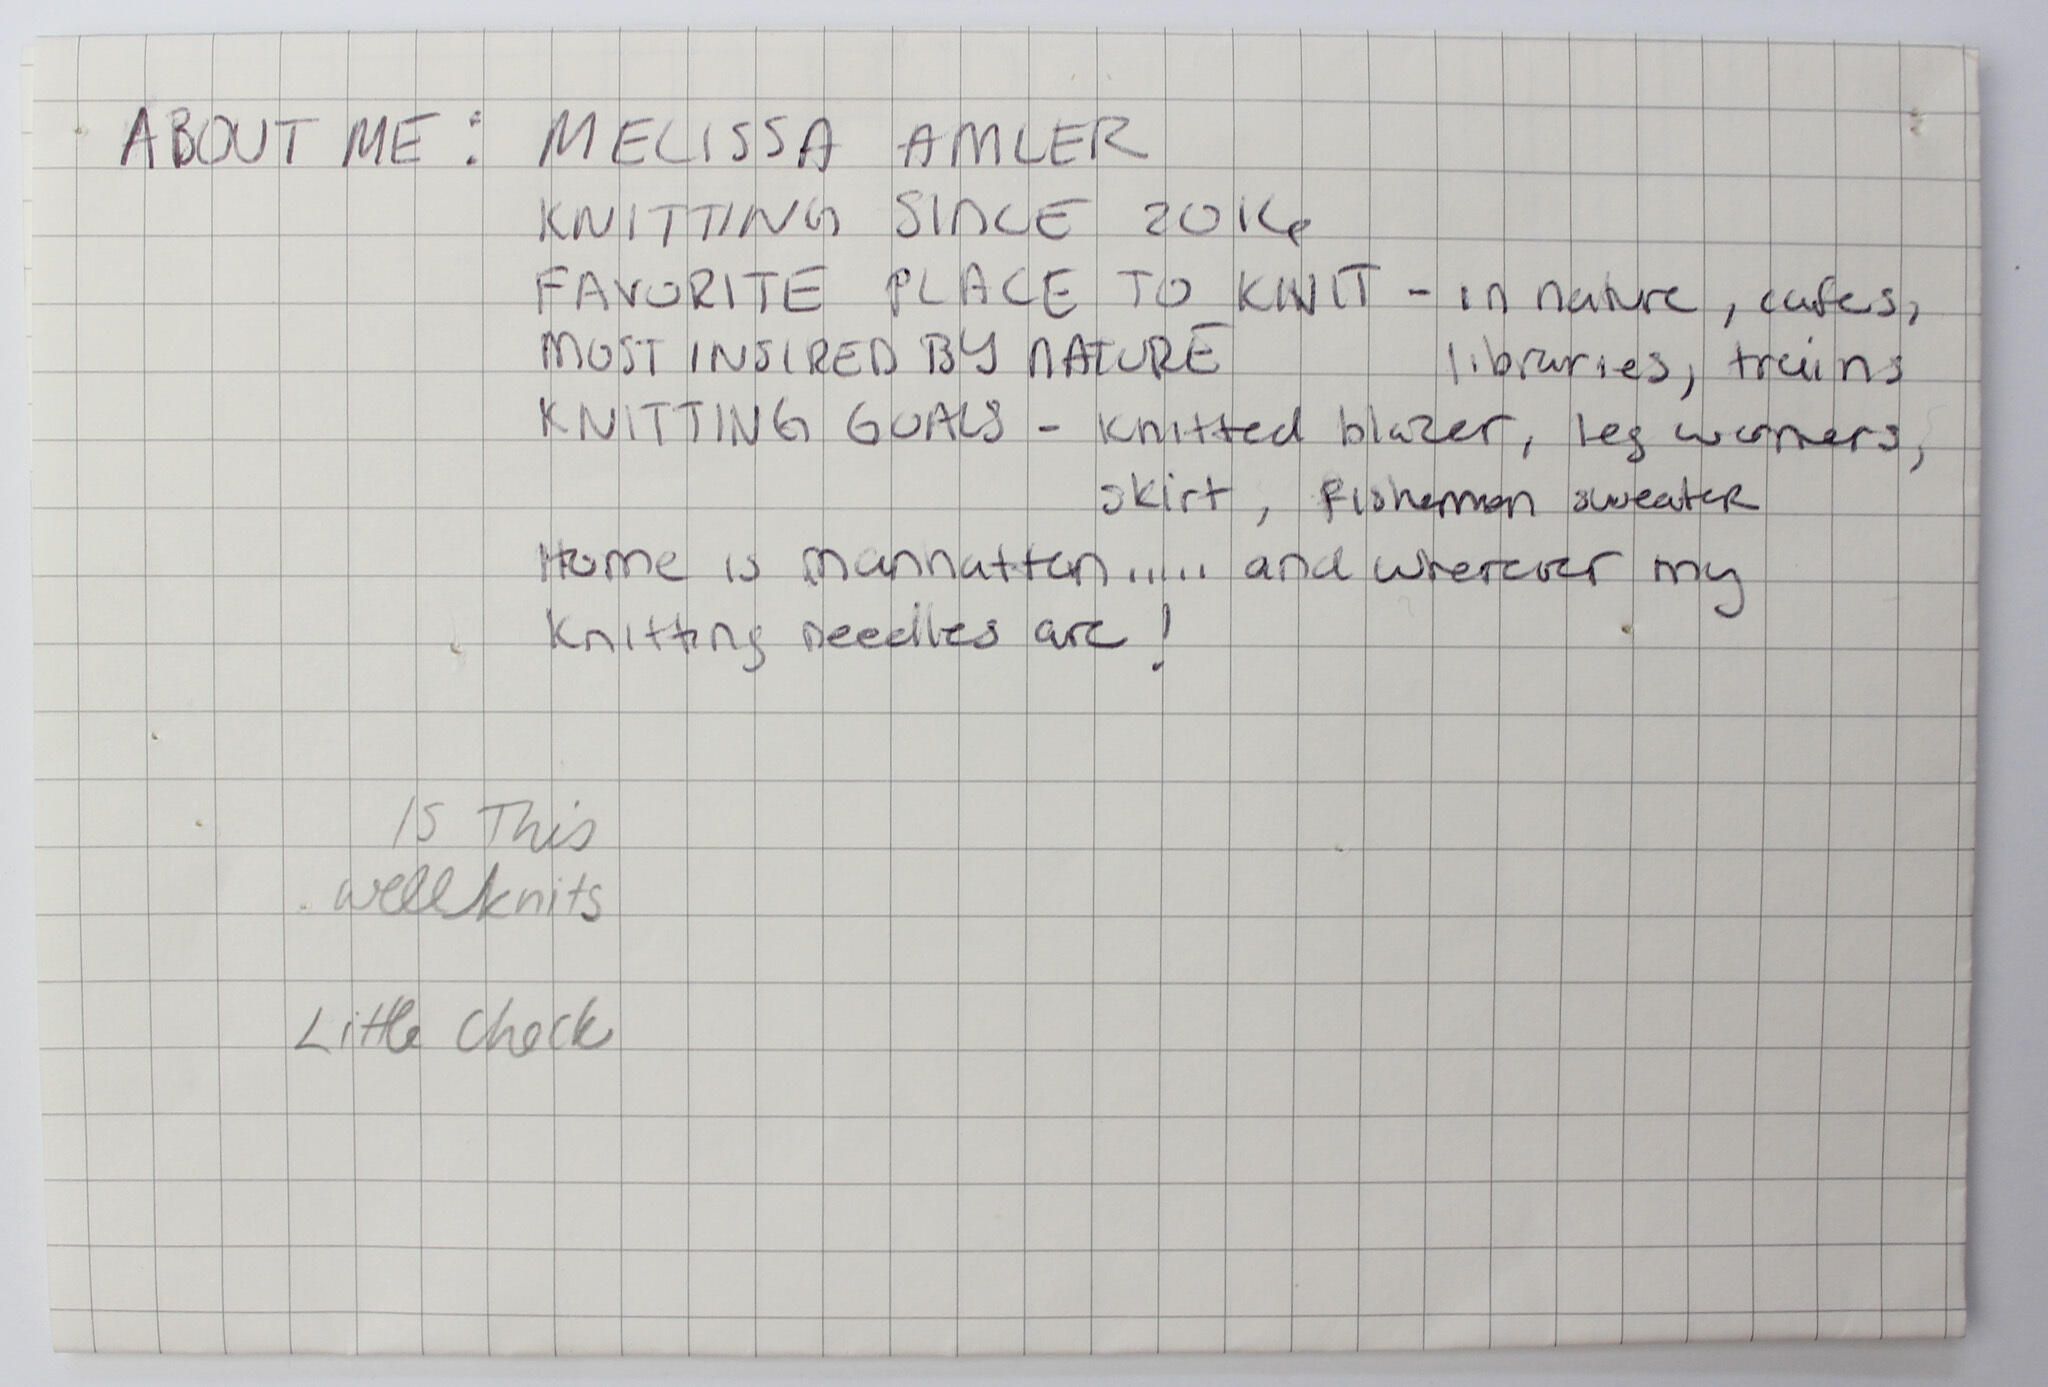 ABOUT ME: MELISSA AMLER
KNITTING SINCE 2016
FAVORITE PLACE TO KNIT - in nature, cafes,
MOST INSIRED BY NATURE libraries, trains
KNITTING GOALS - knitted blazer, leg warmers,
skirt, fisherman sweater
Home is manhattan..... and wherever my
knitting needles are!
Is This
well knits
Little Check